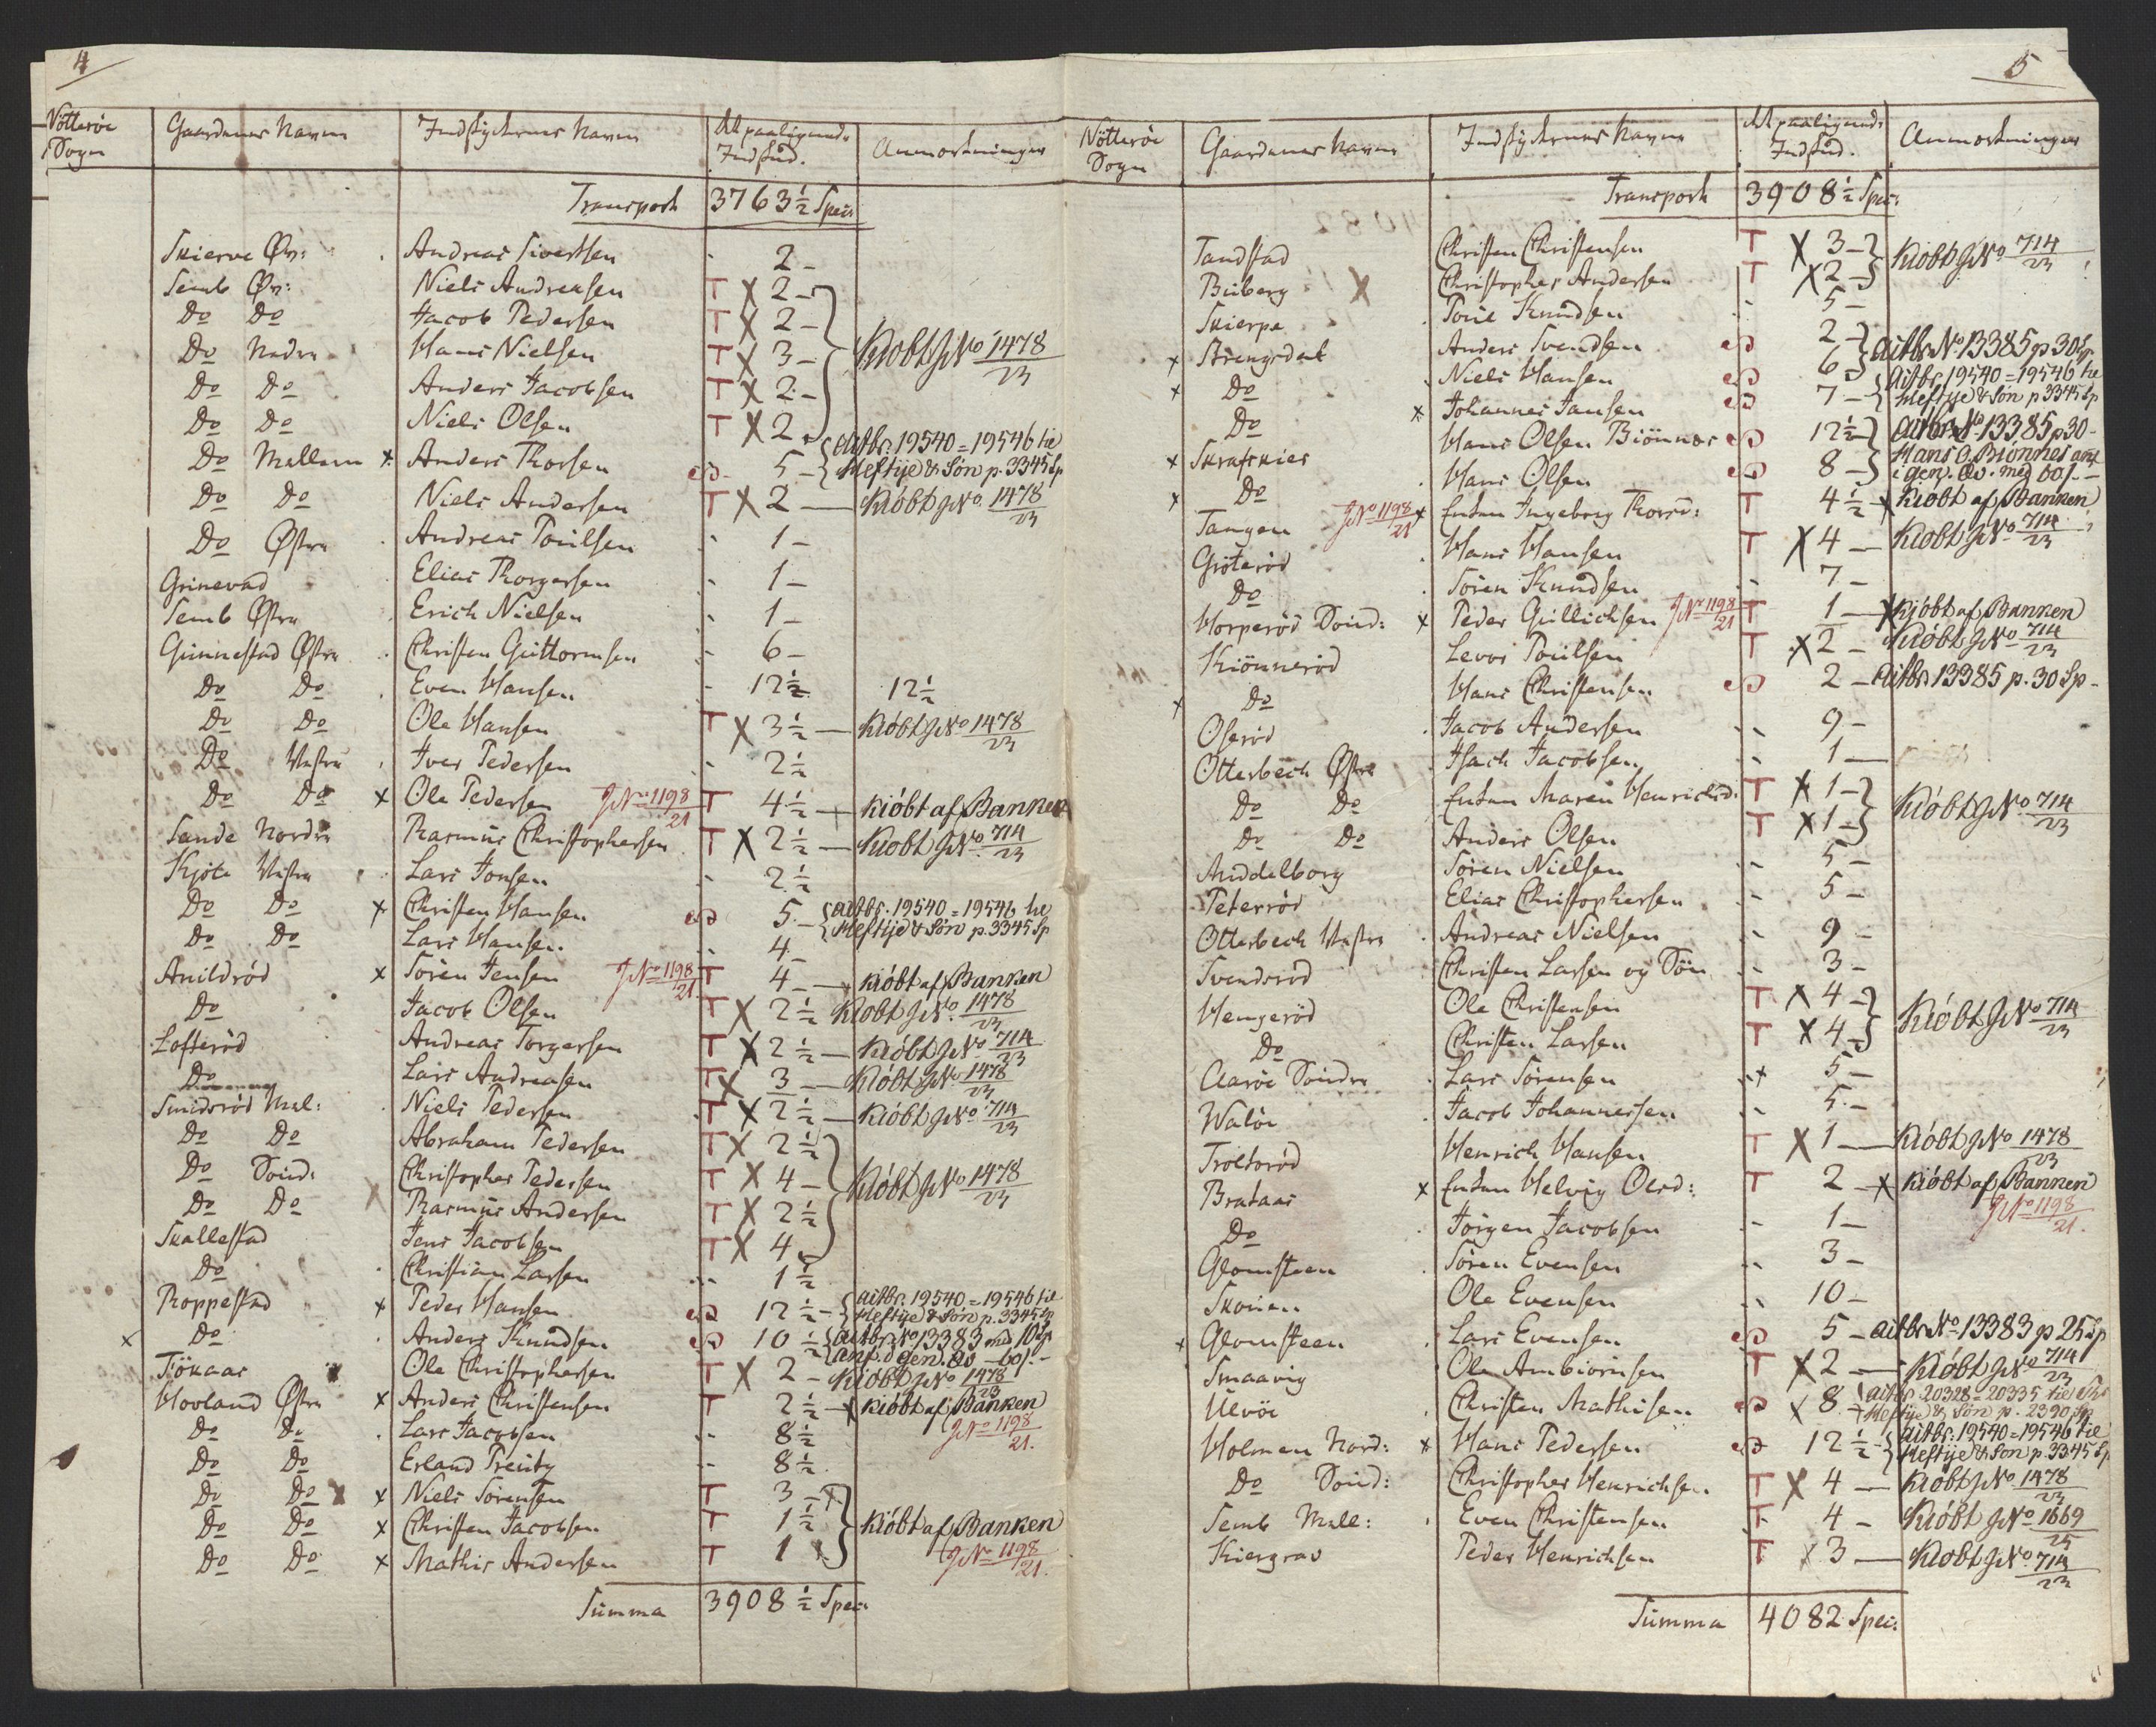 4
Nötterøe Sogn | Gaardenes Navne | Indskydernes Navne | Indskud. | Anmærkninger
Transport 3763½ Speci
Skierve Øv: Andreas Sivertsen 2 -
Semb Øv: Niels Andreasen T X 2 -
Do Do Jacob Pedersen T X 2 -
Do Nedre Hans Nielsen T X 3 - Kiöbt JNo 1478/23
Do Do Anders Jacobsen T X 2 -
Do Do Niels Olsen T X 2
Do Mellem x Anders Thorsen 5 - aitbr. 19540 = 19546 til Heftije & Søn p. 3345 Sp
Do Do Niels Andersen T X 2 — Kiöbt JNo 1478/23
Do Østre Andreas Poulsen 1 -
Grinevad Elias Thorgersen 1 -
Semb Østre Erich Nielsen 1 -
Gunnestad Østre Christen Guttormsen 6 -
Do Do Even Hansen 12½ 12½
Do Do Ole Hansen T X 3½ — Kiöbt JNo 1478/23
Do Vestre Iver Pedersen 2½
Do Do x Ole Pedersen JNo 1198/21 T 4½ — Kiöbt af Banken
Sande Nordre Rasmus Christophersen T X 2½ — Kiöbt JNo 714/23
Kjøle Vestre Lars Jonsen 2½
Do Do x Christen Hansen 5 - aitbr. 19540 = 19546 til Heftije & Søn p. 3345 Sp
Do Do Lars Hansen 4 -
Anildrød x Sören Jensen JNo 1198/21 T 4 — Kiöbt af Banken
Do Jacob Olsen T X 2½ Kiobt JNo 1478/23
Lofterød Andreas Torgersen T X 2½ — Kiöbt JNo 714/23
Do Lars Andreasen T X 3 — Kiöbt JNo 1478/23
Smidsrød Mel: Niels Pedersen T X 2½ — Kiöbt JNo 714/23
Do Do Abraham Pedersen T X 2½
Do Sönd: Christopher Pedersen T X 4 - Kiöbt JNo 1478/23
Do Do X Rasmus Andersen T X 2½
Skallestad Jens Jacobsen T X 4
Do Christian Larsen 1½
Roppestad x Peder Hansen 12½ - aitbr. 19540 = 19546 til Heftije & Søn p. 3345 Sp
x Do Anders Knudsen 10½ aitbr. No 13383 med 10 Sp anf. d gen. Qv — 60 s. -
Fökaas Ole Christophersen T X 2 - Kiöbt JNo 1478/23
Hovland Østre x Anders Christensen T 2½ x Kiöbt af Banken JNo 1198/21.
Do Do Lars Jacobsen 8½
Do Do Erland Preuts 8½
Do Do x x Niels Sörensen T 3 -
Do Do x Christen Jacobsen T 1½ Kiöbt af Banken
Do Do x Mathis Andersen T 1 JNo 1198/21.
Summa 3908½ Speci
5
Nötterøe Sogn | Gaardenes Navne | Indskydernes Navne | Indskud. | Anmærkninger
Transport 3908½ Speci:
Tandstad Christen Christensen T X 3 - Kiöbt JNo 714/23
Buberg X Christopher Andersen T X 2 -
Skierpe Poul Knudsen 5 -
x Strengsdal Anders Svendsen 2 - aitbr No 13385 p 30 Sp
x Do Niels Hansen 6
Do x Johannes Jansen 7 - aitbr. 19540 = 19546 til Heftije & Søn p 3345 Sp
x Skrafskier Hans Olsen Biönnes 12½ aitbr No 13385 p 30 -
x Do Hans Olsen 8 - Hans O. Bionnes anf i gen. Qv. med 60 s. -
Tangen JNo 1198/21 x Enken Ingeborg Thorsd: T 4½ x Kiöbt af Banken
Gröterød Hans Hansen T X 4 — Kiöbt JNo 714/23
Do Sören Knudsen 7 -
Horperød Sönd: x Peder Gullichsen JNo 1198/21 T 1 — x Kjöbt af Banken
Kiönnerød Levor Poulsen T X 2 - Kiöbt JNo 714/23
x Do Hans Christensen 2 - aitbr. 13385 p. 30 Sp -
Oserød Jacob Andersen 9 -
Otterbech Østre Isach Jacobsen 1 —
Do Do Enken Maren Henrichsd: T X 1 - Kiöbt JNo 714/23
Do Do Anders Olsen T X 1 -
Middelborg Sören Nielsen 5 -
Peterrød Elias Christophersen 5 -
Otterbech Vestre Andreas Nielsen 9 -
Svendsrød Christen Larsen og Sön 3 -
Hengerød Ole Christensen T X 4 - Kiöbt JNo 714/23
Do Christen Larsen T X 4 -
Aarøe Söndre Lars Sörensen 5 -
Waløe Jacob Johannesen 5 -
Troldsrød Henrich Hansen T X 1 — Kiöbt JNo 1478/23
Brataas x Enken Helvig Olsd: T 2 x Kiöbt af Banken JNo 1198/21.
Do Jörgen Jacobsen 1 -
Glomsteen Sören Evensen 3 -
Skouen Ole Evensen 10 -
x Glomsteen Lars Evensen 5 - aitbr No 13383 p 25 Sp
Smaavig Ole Ambiörnsen T X 2 — Kiöbt JNo 714/23
Ulvöe Christen Mathisen X 8 - aitbr. 20328 = 20335 til Ths Heftije & Søn p. 2390 Sp
Holmen Nord: x Hans Pedersen 12½ - aitbr. 19540 = 19546 til Heftije & Søn p. 3345 Sp
Do Sönd: Christopher Henrichsen T X 4 — Kiöbt JNo 1478/23
Semb Melle: Even Christensen T 4 - Kiöbt JNo 1669/25
Kiergrav Peder Henrichsen T X 3 — Kiöbt JNo 714/23
Summa 4082 Speci: